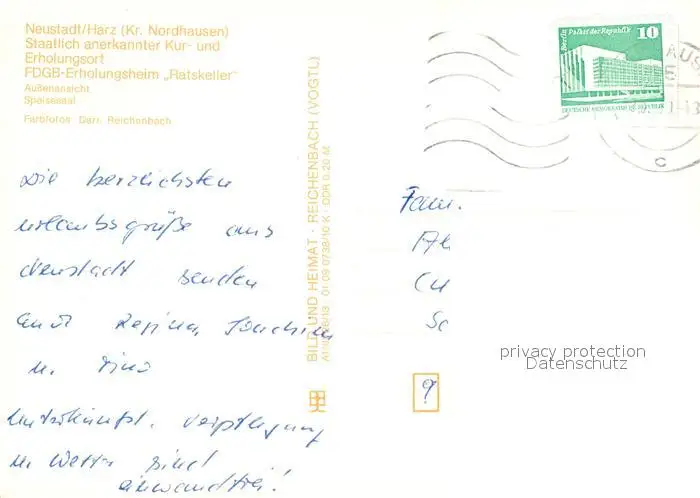 Neustadt/Harz (Kr. Nordhausen)
Staatlich anerkannter Kur- und
Erholungsort
FDGB-Erholungsheim „Ratskeller"
Außenansicht
Speisesaal
Farbfotos Darr, Reichenbach
BILD UND HEIMAT · REICHENBACH (VOGTL)
01 09 0738/10 K · DDR 0,20 M
Berlin Palast der Republik
10
DEUTSCHE DEMOKRATISCHE REPUBLIK
Die herzlichsten
Urlaubsgrüße aus
Neustadt senden
Regina, Joachim
u.
Unterkünft. Verpflegung
u. Wetter sind
einwandfrei!
Fam.
Ah
Cu
Sc
9
privacy protection
Datenschutz